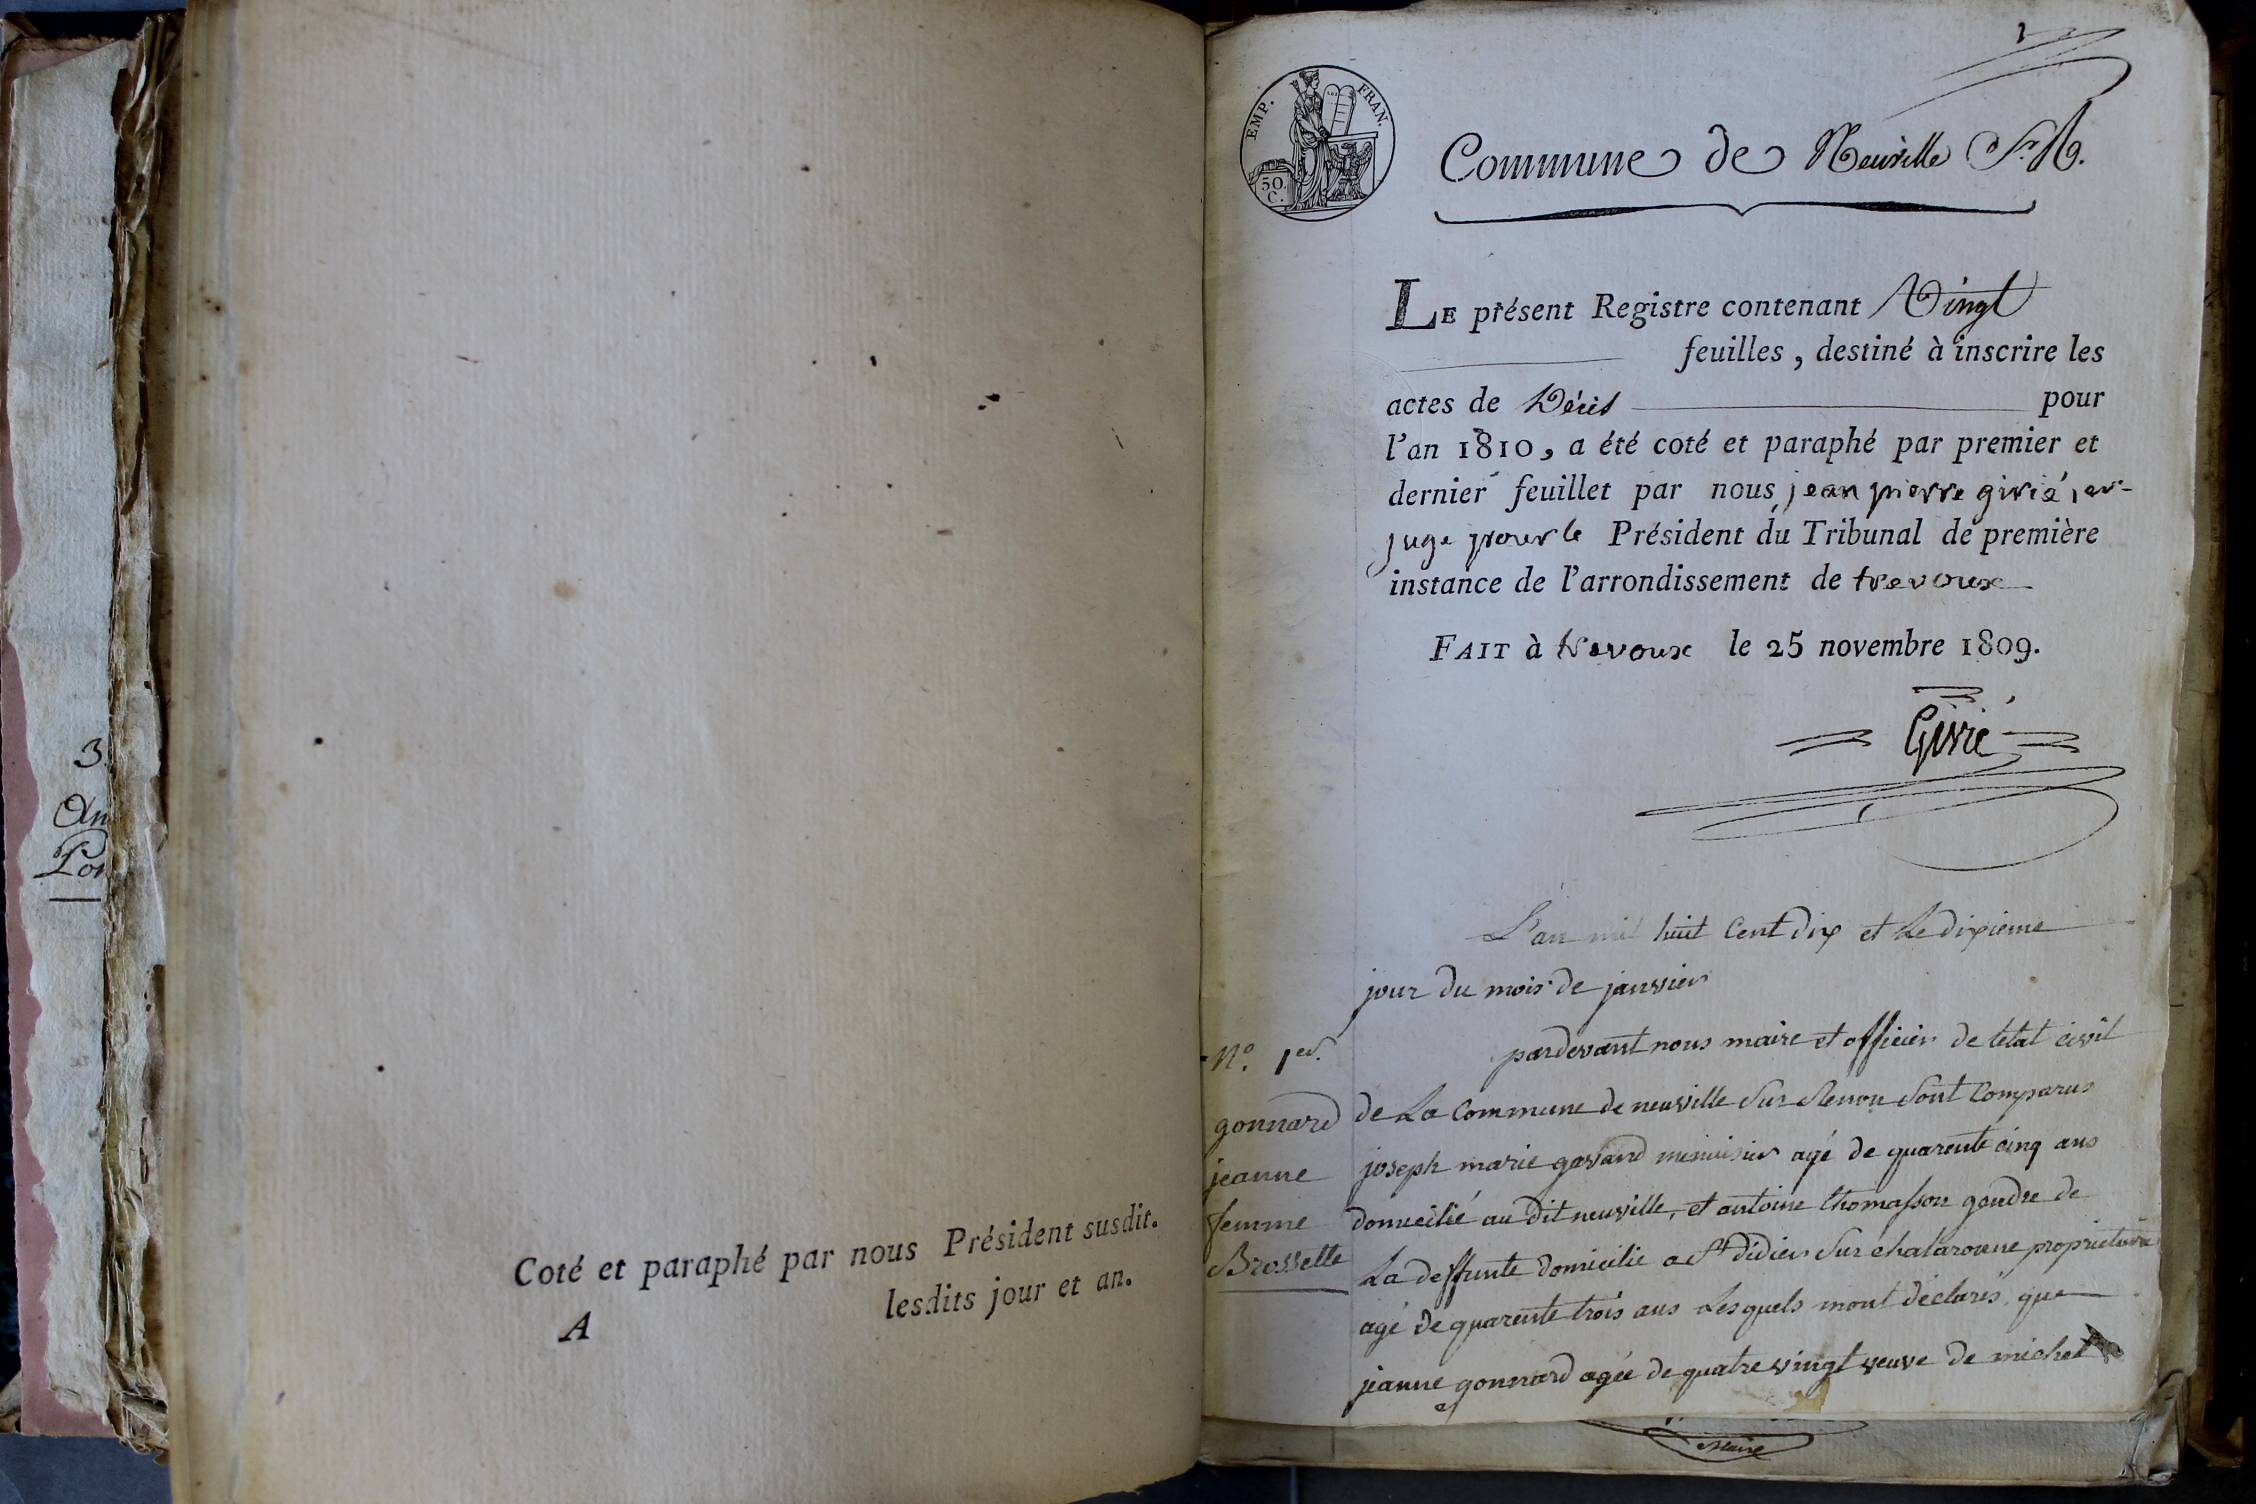 3
An
Por
Coté et paraphé par nous Président susdit.
lesdits jour et an.
A
EMP. FRAN.
50.
C.
Commune de Neuville S.r R.
LE présent Registre contenant Vingt
feuilles, destiné à inscrire les
actes de Décès pour
l'an 1810, a été coté et paraphé par premier et
dernier feuillet par nous jean pierre givié,
juge pour le Président du Tribunal de première
instance de l'arrondissement de trevoux
FAIT à trevoux le 25 novembre 1809.
Givié
L'an mil huit Cent dix et Le dixieme
jour du mois de janvier
pardevant nous maire et officier de letat civil
N.o 1er.
gonnard
jeanne
femme
Brossette
de La Commune de neuville Sur Renon Sont Comparus
joseph marie gavand menuisier agé de quarente cinq ans
domicilié au dit neuville, et antoine thomasson gendre de
La deffunte domicilie a St didier Sur chalaronne proprietaire
agé de quarente trois ans Lesquels mont déclarés que
jeanne gonnard agée de quatre vingt veuve de michel
Maire